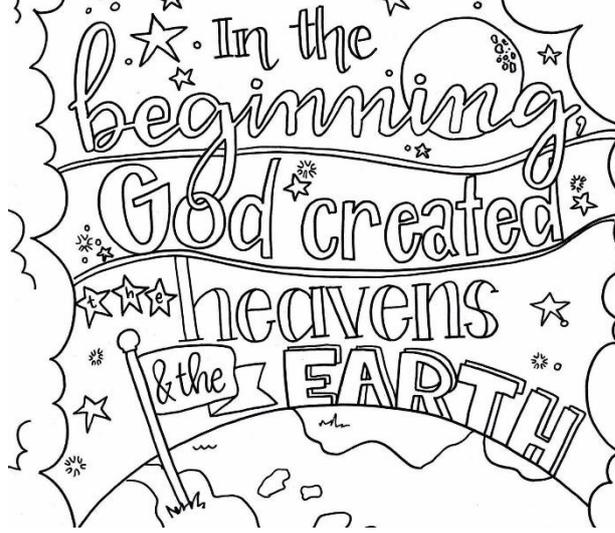 In the
beginning,
God created
the heavens
& the EARTH